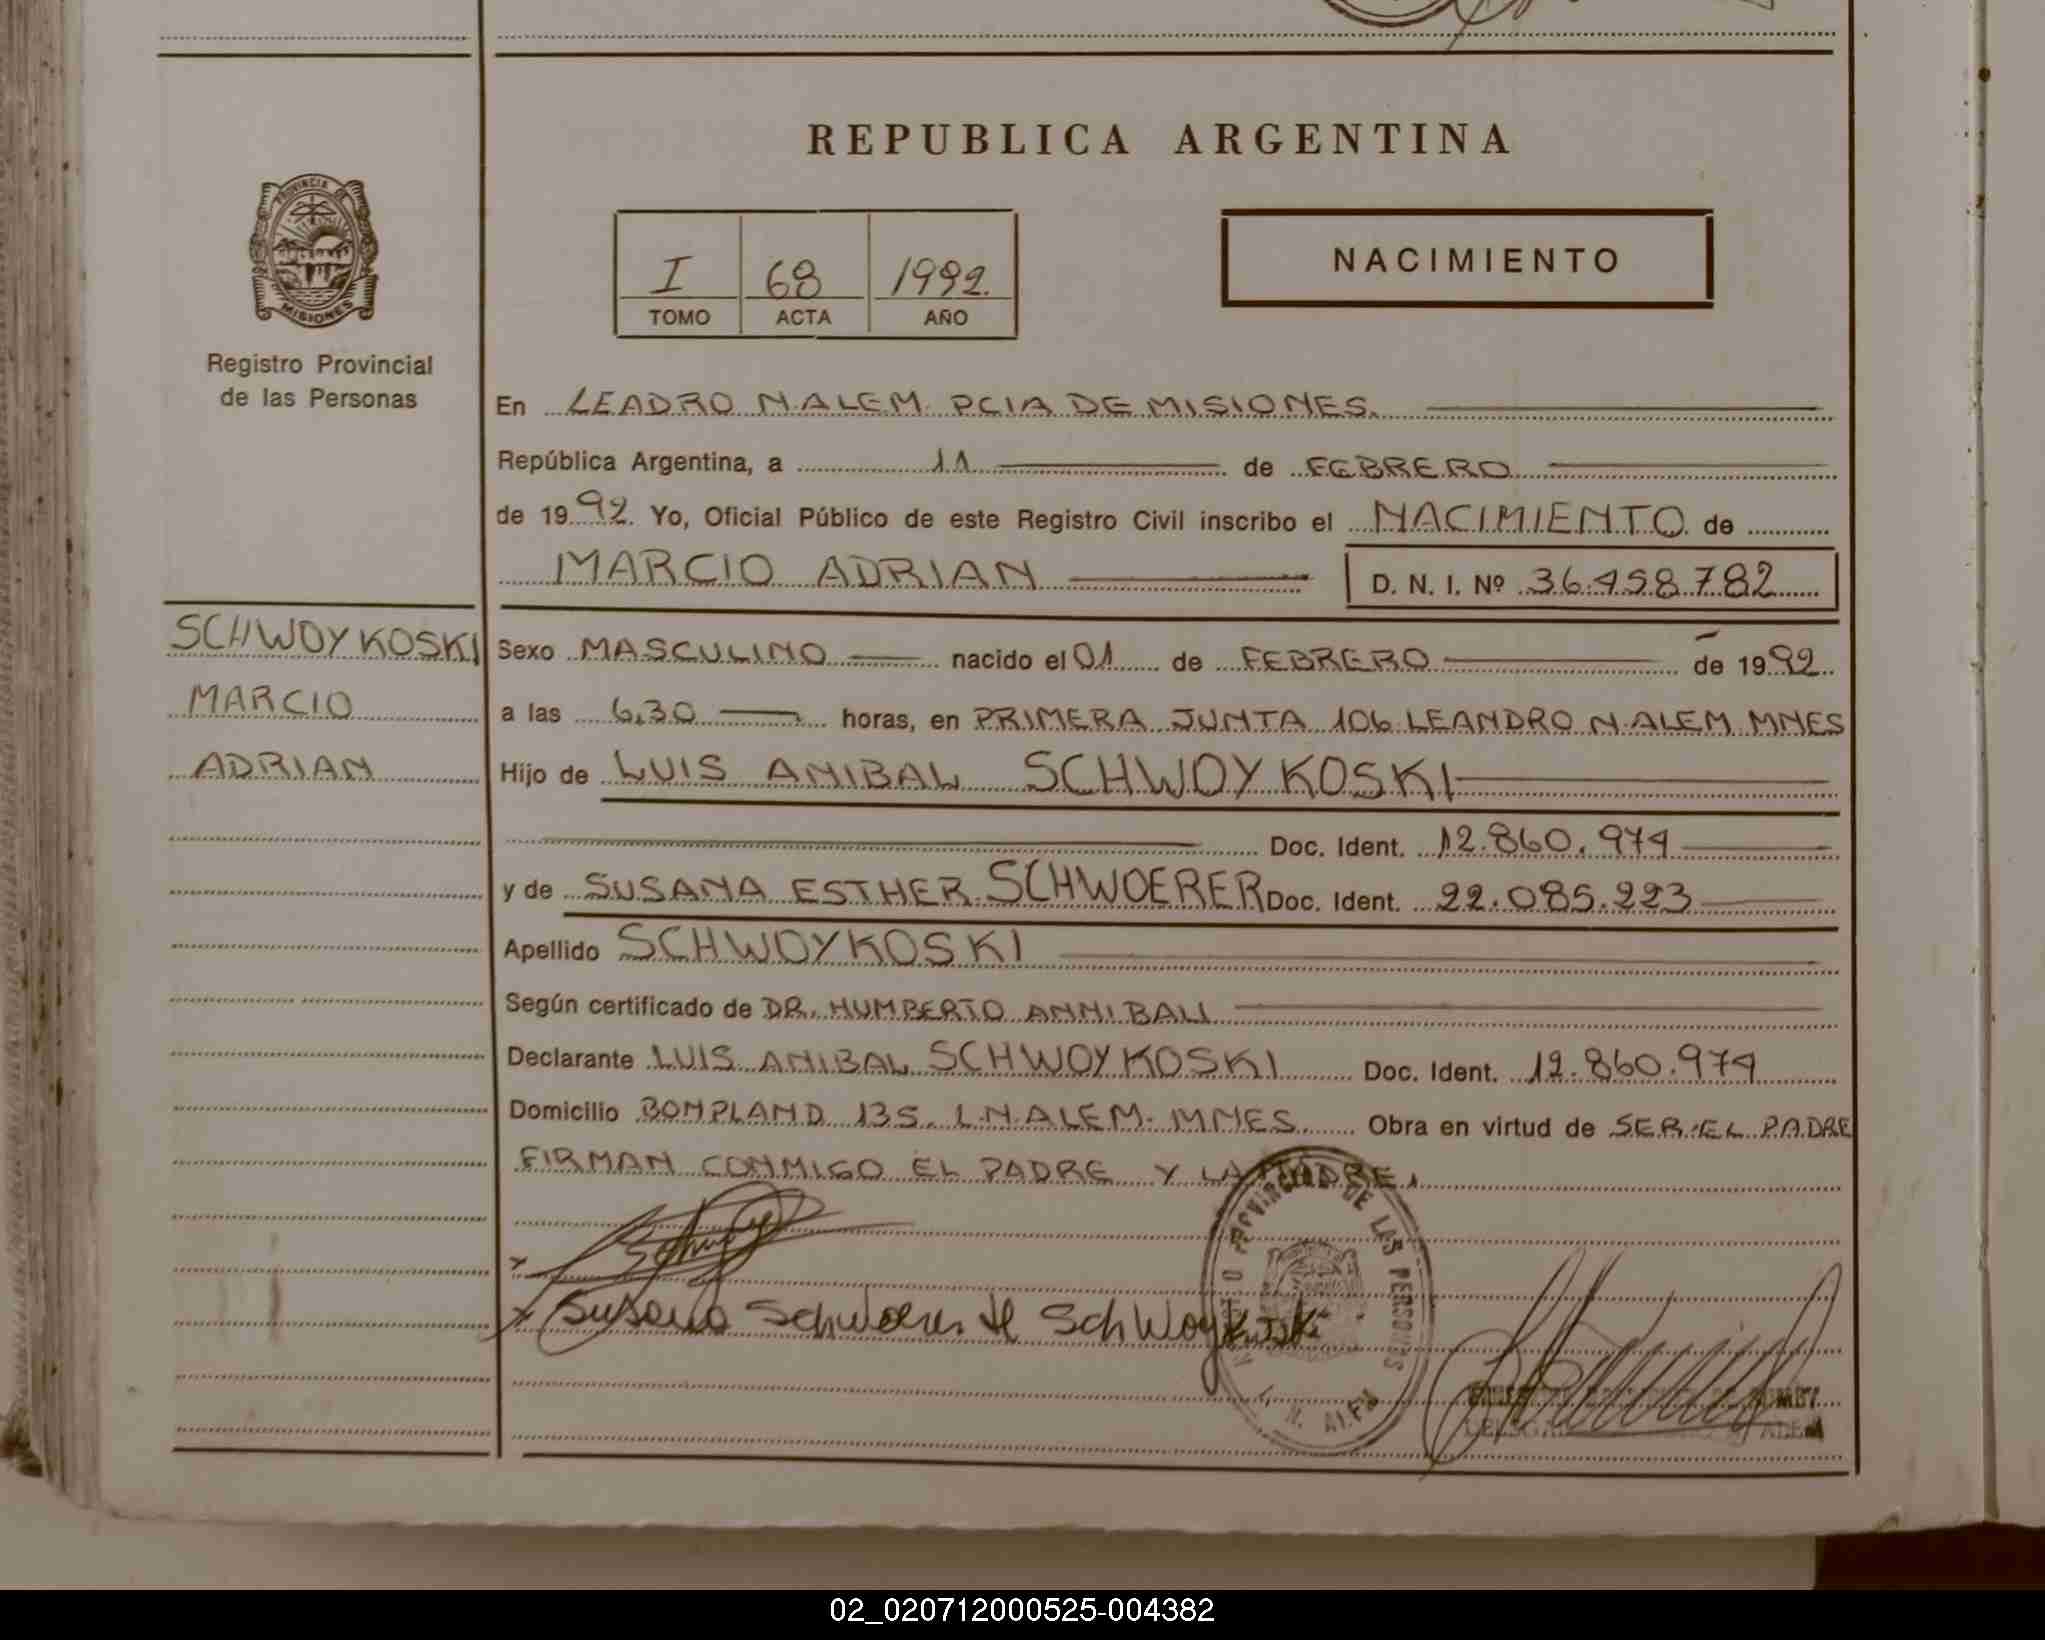 REPUBLICA ARGENTINA
PROVINCIA DE
MISIONES
Registro Provincial
de las Personas
I 68 1992.
TOMO ACTA AÑO
NACIMIENTO
En LEADRO N. ALEM. PCIA DE MISIONES.
República Argentina, a 11 de FEBRERO
de 1992. Yo, Oficial Público de este Registro Civil inscribo el NACIMIENTO de
MARCIO ADRIAN D. N. I. Nº 36.458.782
SCHWOYKOSKI
MARCIO
ADRIAN
Sexo MASCULINO nacido el 01 de FEBRERO de 1992.
a las 6,30 horas, en PRIMERA JUNTA 106 LEANDRO N. ALEM MNES
Hijo de LUIS ANIBAL SCHWOYKOSKI
Doc. Ident. 12.860.974
y de SUSANA ESTHER SCHWOERER Doc. Ident. 22.085.223
Apellido SCHWOYKOSKI
Según certificado de DR. HUMBERTO ANNIBALI
Declarante LUIS ANIBAL SCHWOYKOSKI Doc. Ident. 12.860.974
Domicilio BONPLAND 135. L.N. ALEM. MNES Obra en virtud de SER EL PADRE
FIRMAN CONMIGO EL PADRE Y LA MADRE.
PROVINCIAL DE LAS PERSONAS
L. N. ALEM
Susana Schwoerer de Schwoykoski
02_020712000525-004382